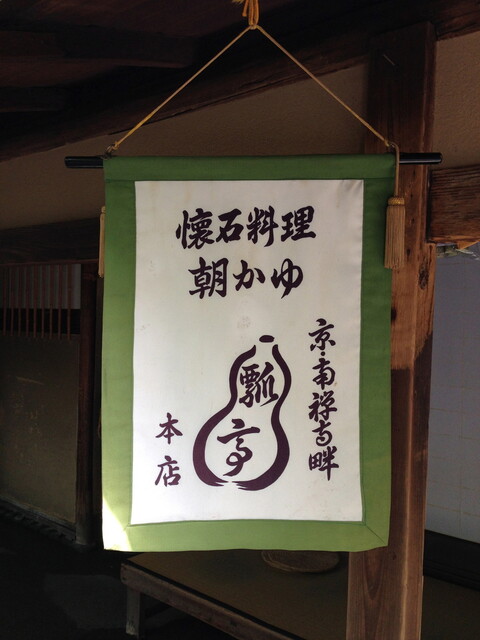 懐石料理
朝かゆ
京・南禅寺畔
瓢亭
本店